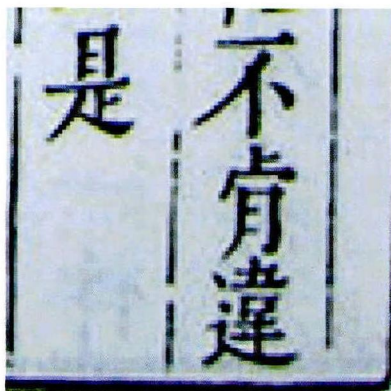 不肯違
是